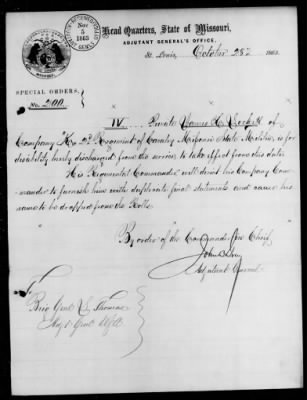 Head Quarters, State of Missouri,
ADJUTANT GENERAL'S OFFICE,
NOV
5
1863
St. Louis, October 28th 1863.
SPECIAL ORDERS,
No. 200
IV Private H. of
Company "H" 2d Regiment of Cavalry Missouri State Militia, is for
disability hereby discharged from the service to take effect from this date.
His Regimental Commander will direct his Company Com-
mander to furnish him with duplicate final statements and cause his
name to be dropped from the Rolls.
By order of the Commander in Chief,
John
Adjutant General.
To
Brig Genl L Thomas
Adjt Genl USA